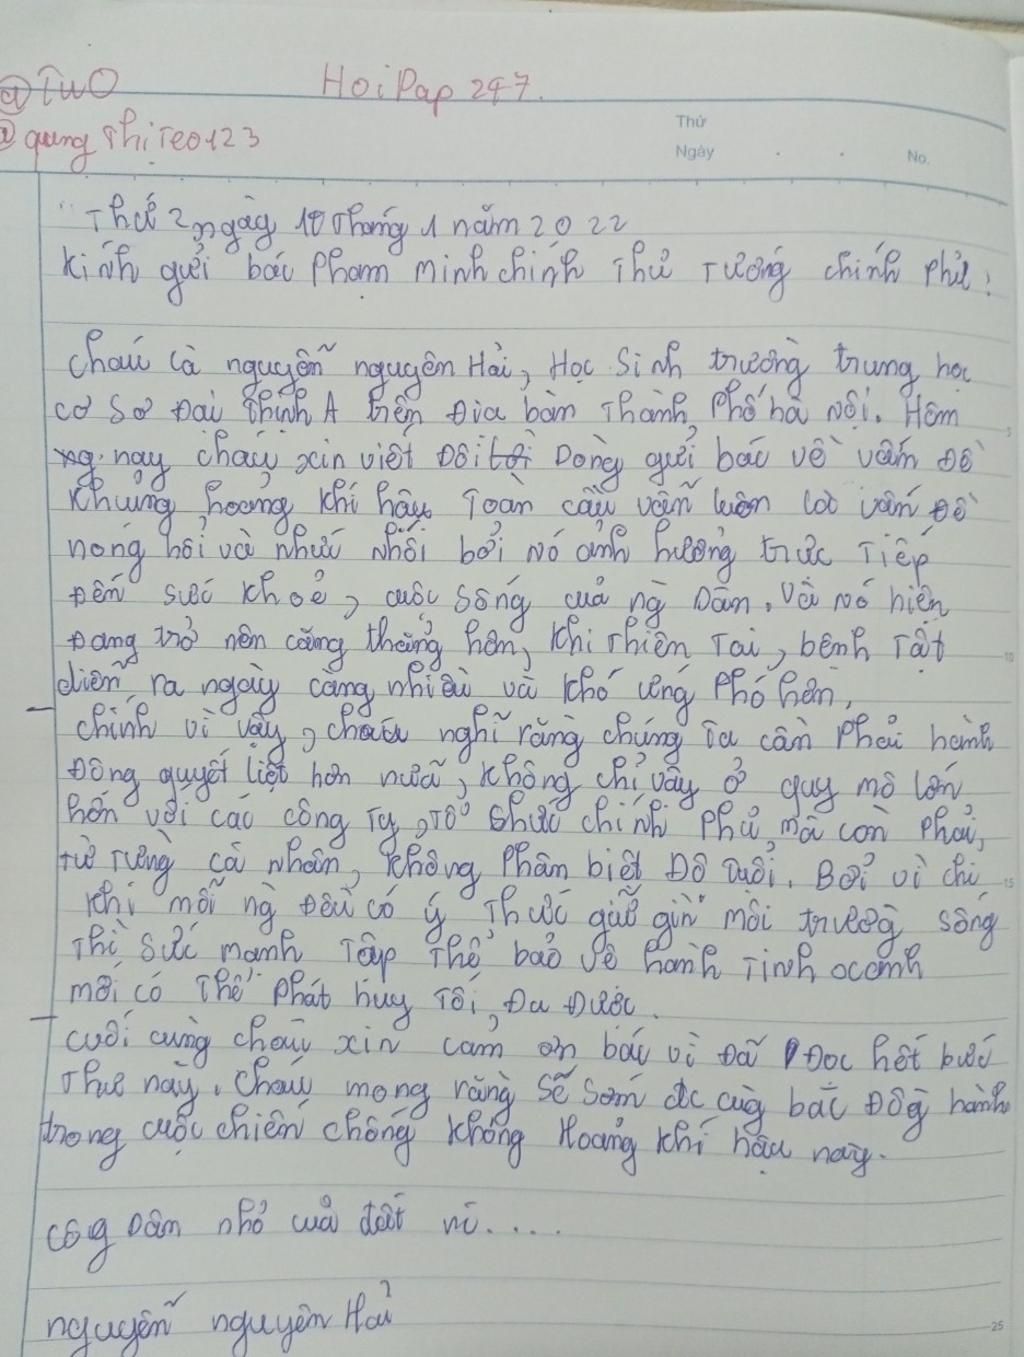 @TuO HoiĐap 247.
@quangThiTeo123
Thứ
Ngày No.
"Thứ 2 ngày 10 Tháng 1 năm 2022
Kính gửi bác Phạm minh chính Thủ Tướng chính Phủ!
cháu là nguyễn nguyên Hải, Học Sinh trường trung học
cơ Sơ Đại Thịnh A trên Địa bàn Thành Phố hà Nội. Hôm
nay cháu xin viết Đôi Dòng gửi bác về vấn Đề
Khủng hoảng khí hậu Toàn cầu vẫn luôn là vấn Đề
nóng hổi và nhức nhối bởi Nó ảnh hưởng trực Tiếp
Đến Sức Khoẻ, cuộc Sống của ng Dân. Và Nó hiện
Đang trở nên căng thẳng hơn, khi Thiên Tai, bệnh Tật
diễn ra ngày càng nhiều và khó ứng Phó hơn,
chính vì vậy, cháu nghĩ rằng chúng Ta cần Phải hành
Động quyết liệt hơn nưã, không chỉ vậy ở quy mô lớn
hơn với các công Ty, Tổ chức chính Phủ mà còn Phải
Từ Từng cá nhân, không Phân biệt Độ Tuổi. Bởi vì chỉ
Khi mỗi ng Đều có ý Thức giữ gìn môi trường Sống
Thì Sức mạnh Tập Thể bảo vệ hành Tinh xanh
mới có Thể Phát huy Tối Đa Được.
cuối cùng cháu xin cảm ơn bác vì Đã Đọc hết bức
Thư này. cháu mong rằng Sẽ Sớm đc cùg bác Đồg hành
trong cuộc chiến chống khổng Hoảng khí hậu này.
côg Dân nhỏ cuả đất nc....
nguyễn nguyên Hải
25